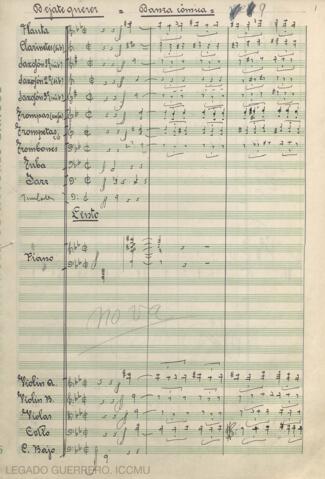 Dejate querer = Danza cómica =
1
Flauta
Clarinetes (sib)
Saxofón 1º (mib)
Saxofón 2º (sib)
Saxofón 3º (mib)
Trompas (mib)
Trompetas
Trombones
Tuba
Jazz
Timbales
Lento
Piano
no va
Violin A.
Violin B.
Violas
Cello
C. Bajo
LEGADO GUERRERO. ICCMU